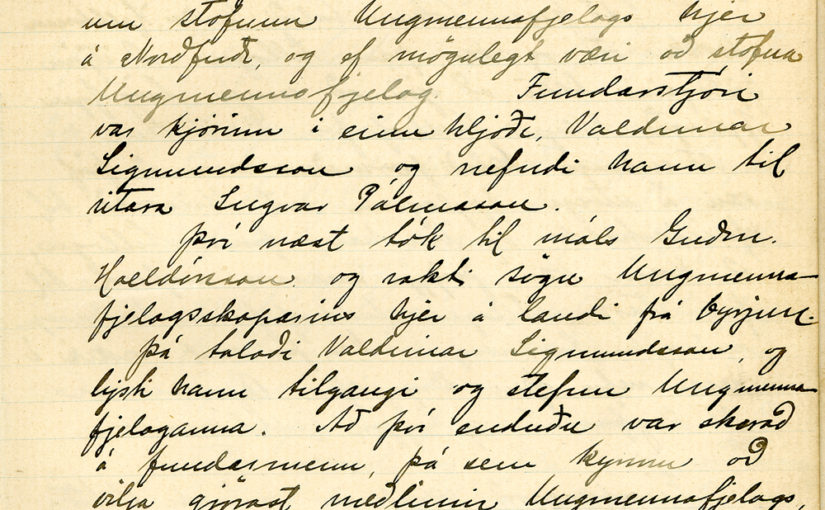 um stofnun Ungmennafjelags hjer
á Norðfirði, og ef mögulegt væri að stofna
Ungmennafjelag. Fundarstjóri
var kjörinn í einu hljóði, Valdimar
Sigmundsson og nefndi hann til
ritara Ingvar Pálmason.
Því næst tók til máls Guðm.
og rakti sögu Ungmenna-
fjelagsskaparins hjer á landi frá byrjun.
Þá talaði Valdimar Sigmundsson, og
lýsti hann tilgangi og stefnu Ungmenna-
fjelaganna. Að því enduðu var skorað
á fundarmenn, þá sem kynnu að
vilja gjörast meðlimir Ungmennafjelags,